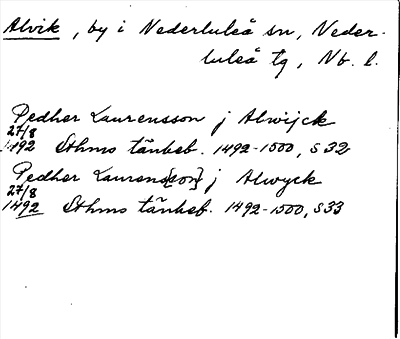 Alvik, by i Nederluleå sn, Neder-
luleå tg, Nb. l.
Pedher Laurensson j Alwijck
27/8
1492 Sthms tänkeb. 1492-1500, s 32
Pedher Laurens[son] j Alwyck
27/8
1492 Sthms tänkeb. 1492-1500, s 33